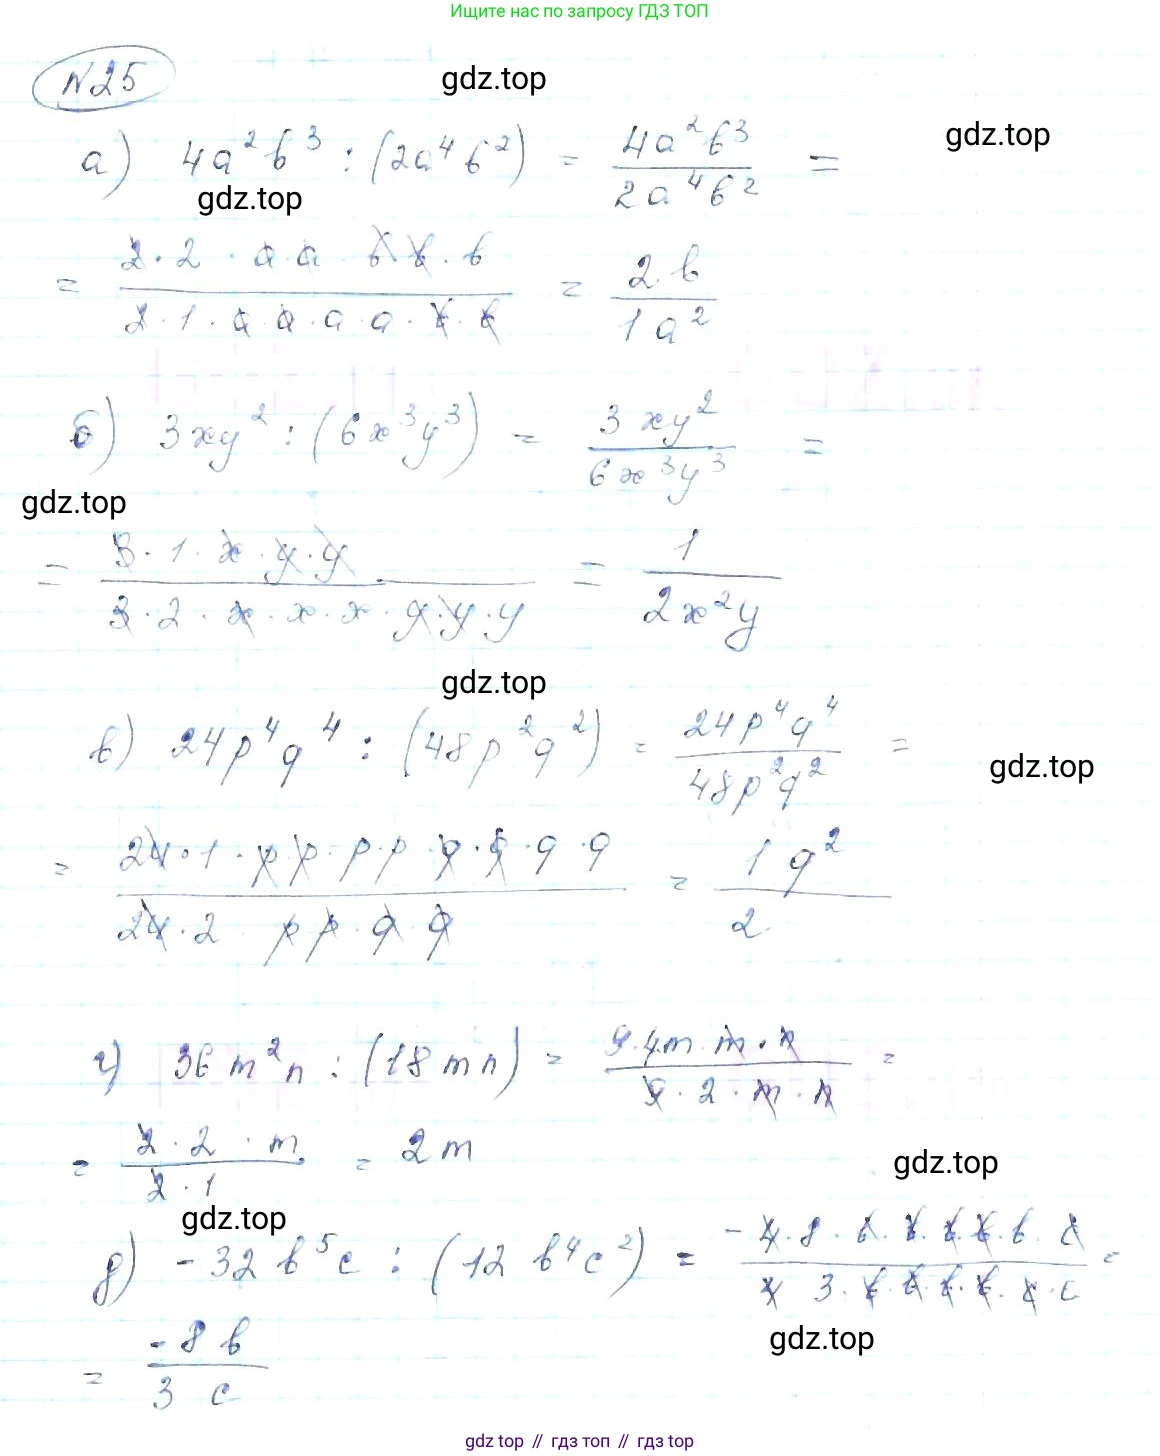 Ищите нас по запросу ГДЗ ТОП
N25
gdz.top
gdz.top
а) 4a²b³ : (2a⁴b²) = 4a²b³ / 2a⁴b² =
gdz.top
= 2·2·a·a·b·b·b / 2·1·a·a·a·a·b·b = 2b / 1a²
б) 3xy² : (6x³y³) = 3xy² / 6x³y³ =
gdz.top
= 3·1·x·y·y / 3·2·x·x·x·y·y·y = 1 / 2x²y
gdz.top
в) 24p⁴q⁴ : (48p²q²) = 24p⁴q⁴ / 48p²q² =
gdz.top
= 24·1·p p·p·p·q·q·q·q / 24·2 p p·q·q = 1q² / 2
г) 36m²n : (18mn) = 9·4m·m·n / 9·2·m·n =
= 2·2·m / 2·1 = 2m
gdz.top
gdz.top
д) -32b⁵c : (12b⁴c²) = -4·8·b·b·b·b·b·c / 4·3·b·b·b·b·c·c =
gdz.top
= -8b / 3c
gdz top // гдз топ // gdz top